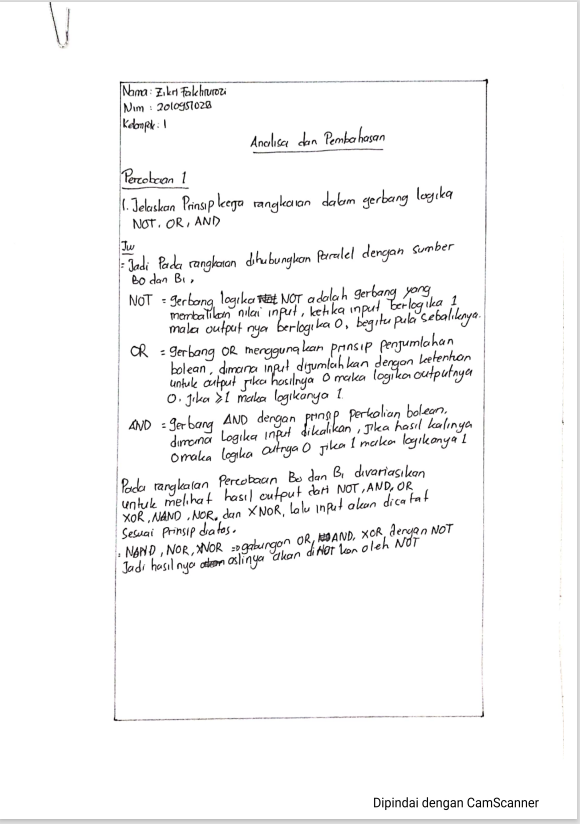 Nama : Zikri Fakhrurozi
Nim : 2010951028
Kelompok : 1
Analisa dan Pembahasan
Percobaan 1
1. Jelaskan Prinsip kerja rangkaian dalam gerbang logika
NOT, OR, AND
Jw
= Jadi Pada rangkaian dihubungkan Paralel dengan sumber
B0 dan B1,
NOT = gerbang logika NOT adalah gerbang yang
membatikan nilai input, ketika input berlogika 1
maka output nya berlogika 0, begitu pula sebaliknya.
OR = gerbang OR menggunakan prinsip penjumlahan
bolean, dimana input dijumlahkan dengan ketentuan
untuk output jika hasilnya 0 maka logika outputnya
0. Jika ≥1 maka logikanya 1.
AND = gerbang AND dengan prinsip perkalian bolean,
dimana logika input dikalikan, jika hasil kalinya
0 maka logika outnya 0 jika 1 maka logikanya 1
Pada rangkaian Percobaan B0 dan B1 divariasikan
untuk melihat hasil output dari NOT, AND, OR
XOR, NAND, NOR, dan XNOR, lalu input akan dicatat
Sesuai Prinsip diatas.
: NAND, NOR, XNOR => gabungan OR, AND, XOR dengan NOT
Jadi hasil nya aslinya akan diNOT kan oleh NOT
Dipindai dengan CamScanner